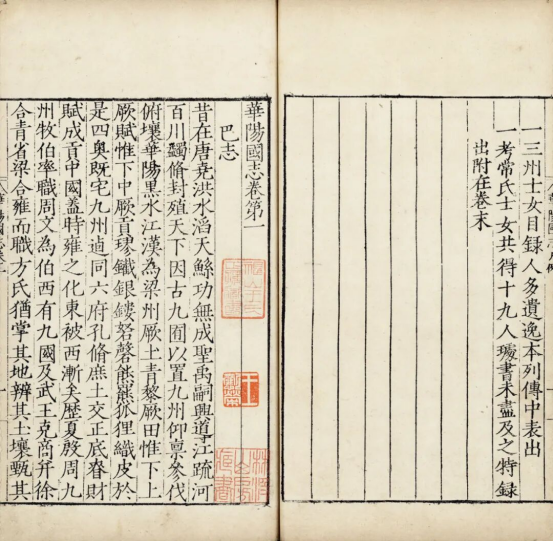 一三州士女目錄人多遺逸本列傳中表出
一考常氏士女共得十九人璩書未盡及之特録
出附在卷末
華陽國志卷第一
巴志
昔在唐堯洪水滔天鯀功無成聖禹嗣興導江疏河
百川蠲脩封殖天下因古九囿以置九州仰禀參伐
俯壤華陽黑水江漢為梁州厥土青黎厥田惟下上
厥賦惟下中厥貢璆鐵銀鏤砮磬熊羆狐狸織皮於
是四奥既宅九州逌同六府孔脩庶土交正底眘財
賦成貢中國蓋時雍之化東被西漸矣歴夏殷周九
州牧伯率職周文為伯西有九國及武王克商并徐
合青省梁合雍而職方氏猶掌其地辨其土壤甄其